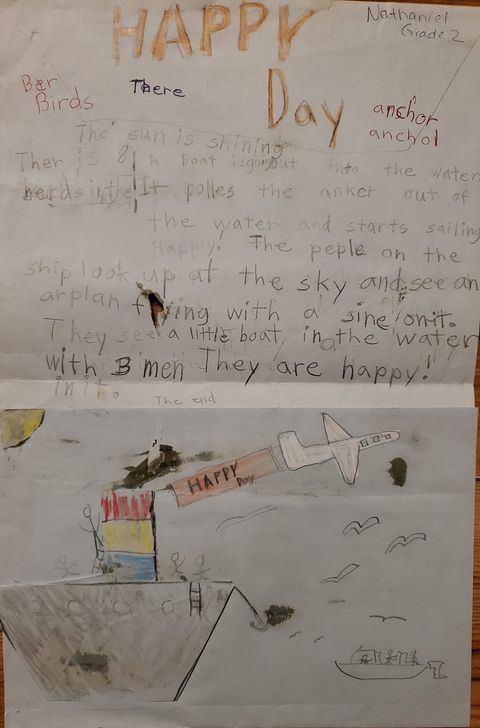 HAPPY
Nathaniel
Grade 2
Day
Ber
Birds
There
anchor
anchol
The sun is shining
Ther is 8 A boat is out into the water
berds in the It polles the anker out of
the water and starts sailing
Happly. The peple on the
ship look up at the sky and see an
arplan with a sine onit.
They see a little boat, in the water
with 3 men They are happy!
in it.
The end
HAPPY
Day